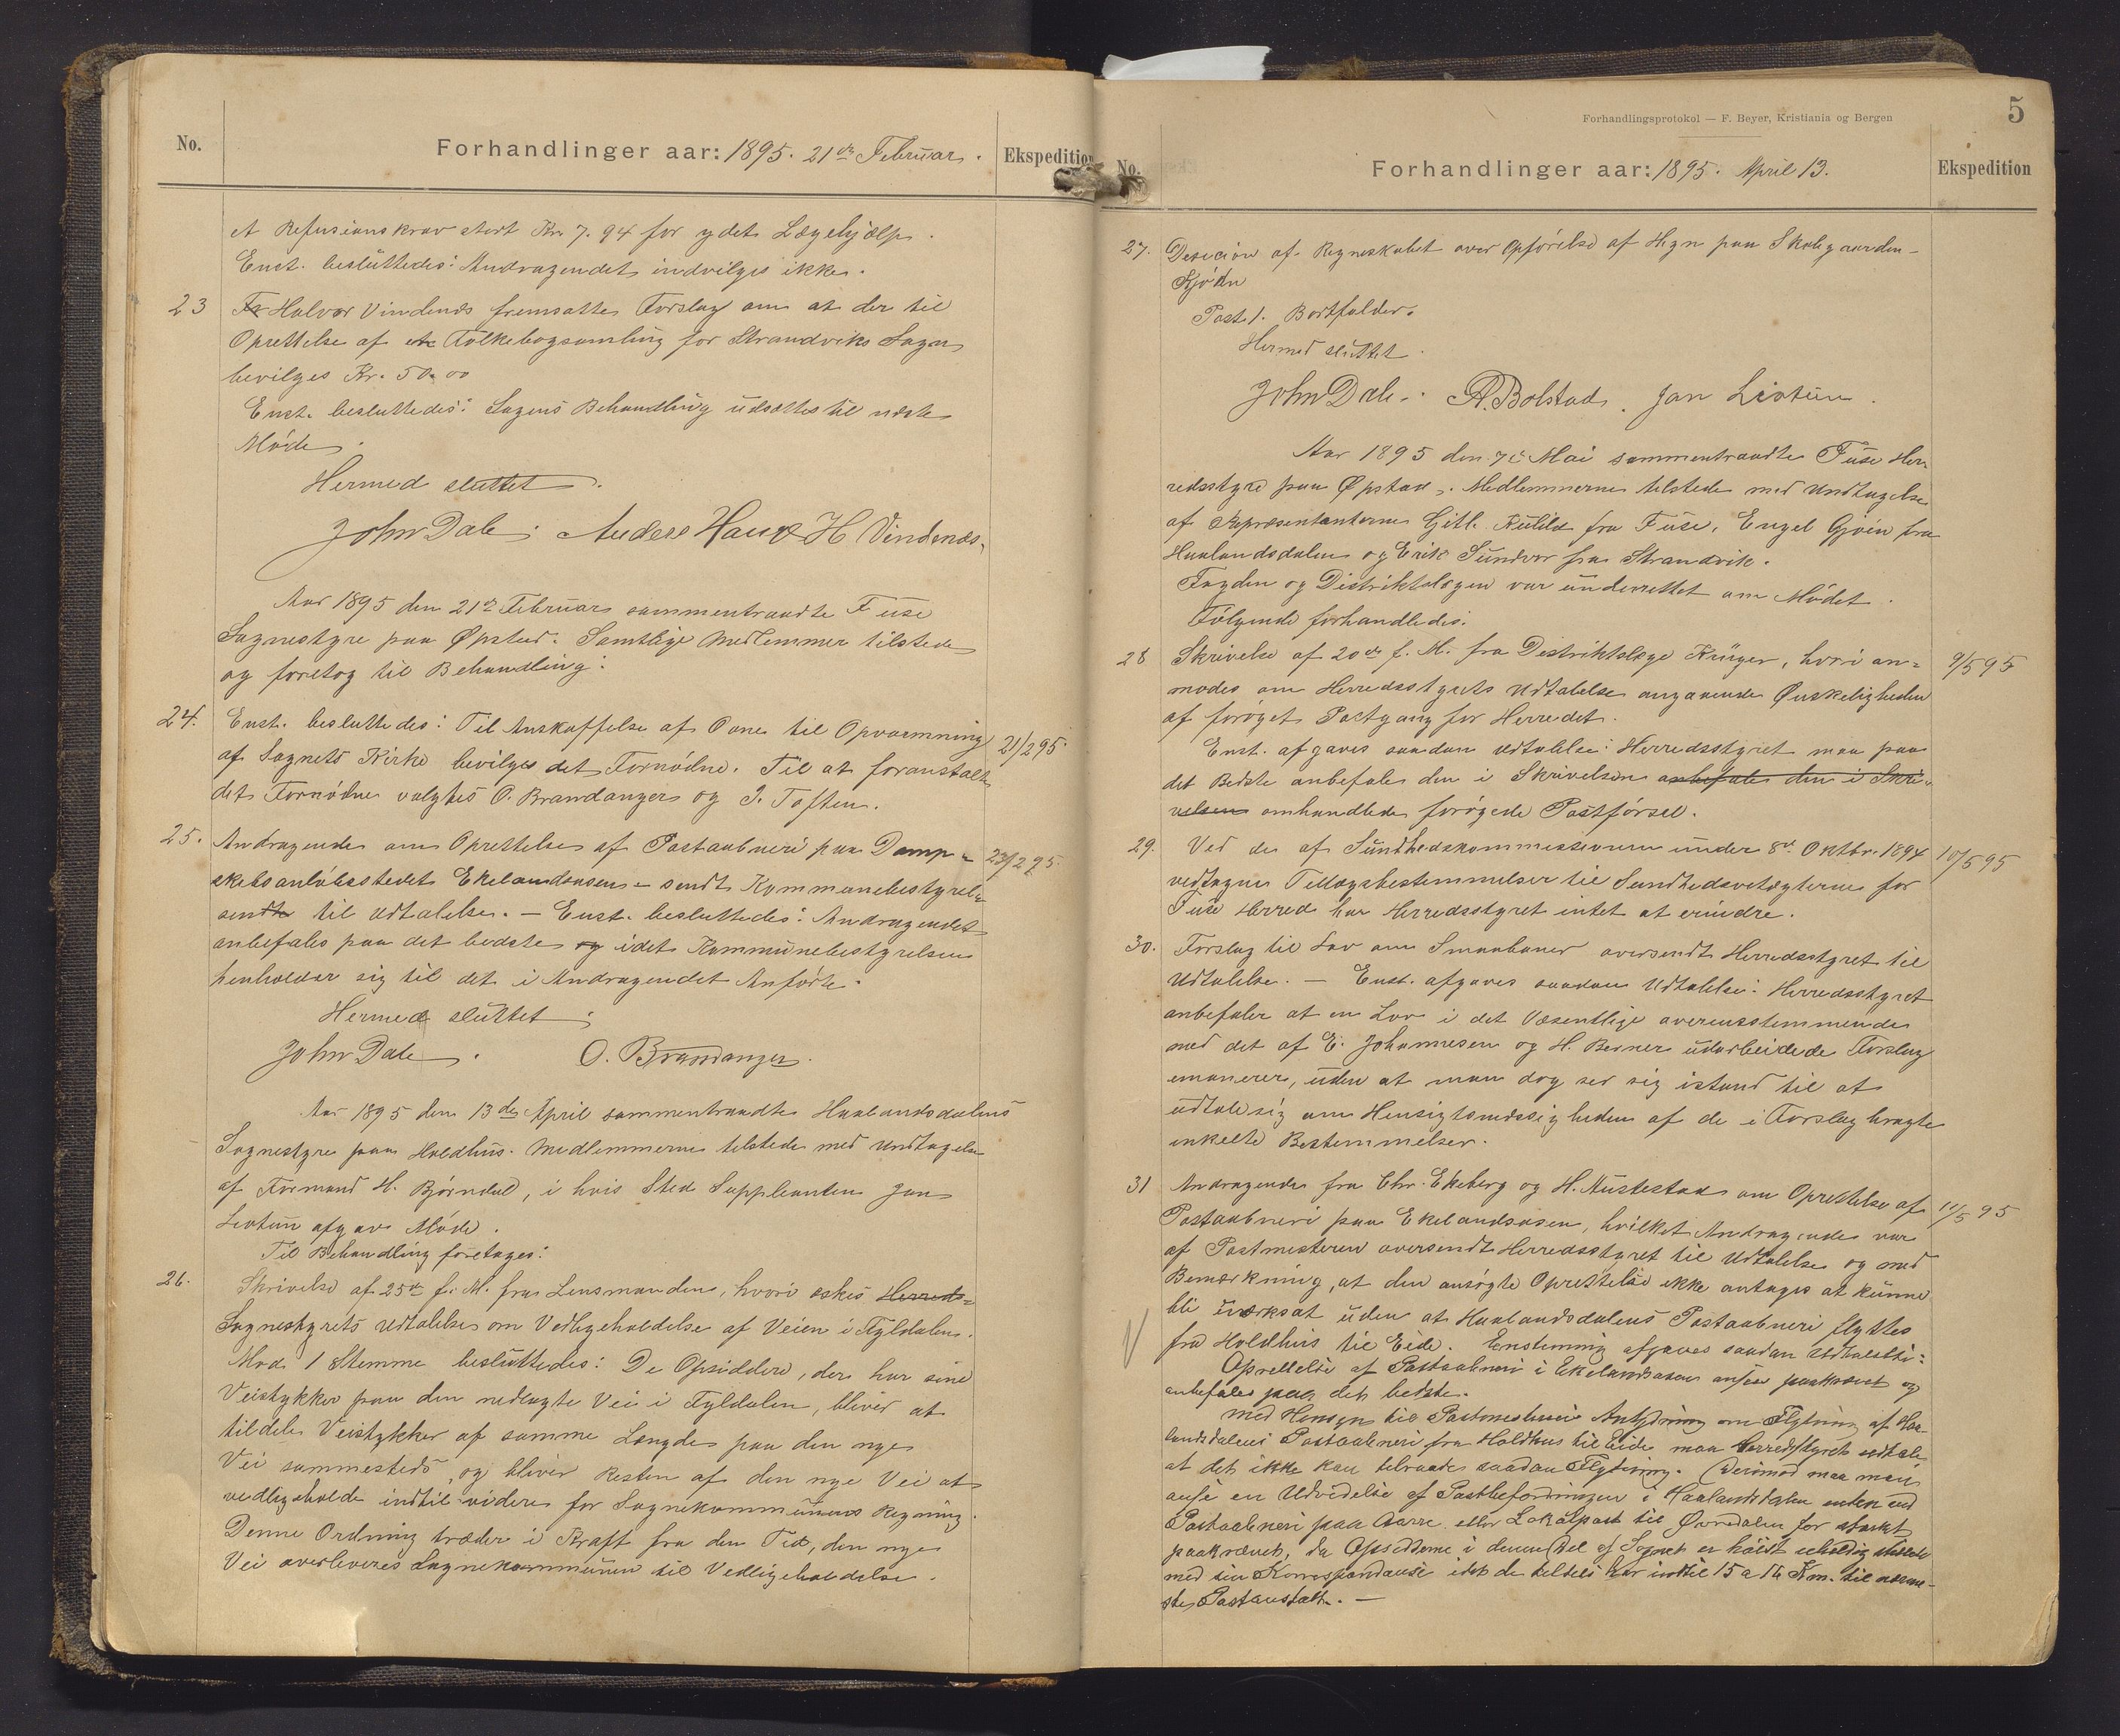 No.
Forhandlinger aar: 1895. 21de Februar.
Ekspedition
et Refusionskrav stort Kr. 7.94 for ydet Lægehjælp.
Enst. besluttedes: Andragendet indvilges ikke.
23 Halvor Vindenes fremsatte Forslag om at der til
Oprettelse af en Folkebogsamling for Strandviks Sogn
bevilges Kr. 50.00
Enst. besluttedes: Sagens Behandling udsættes til næste
Møde.
Hermed sluttet.
John Dale. Anders Hauge H Vindenæs.
Aar 1895 den 21de Februar sammentraadte Fuse
Sognestyre paa Øpstad. Samtlige Medlemmer tilstede
og foretog til Behandling:
24. Enst. besluttedes: Til Anskaffelse af Ovne til Opvarmning
21/2 95.
af Sognets Kirke bevilges det Fornødne. Til at foranstalte
det Fornødne valgtes O. Brandanger og J. Toften.
25. Andragende om Oprettelse af Postaabneri paa Damp-
23/2 95.
skibsanløbsstedet Ekelandsosen – sendt Kommunebestyrel.
sendte til Udtalelse. – Enst. besluttedes: Andragendet
anbefales paa det bedste og idet Kommunebestyrelsen
henholder sig til det i Andragendet Anførte.
Hermed sluttet
John Dale. O. Brandanger.
Aar 1895 den 13de April sammentraadte Haalandsdalens
Sognestyre paa Holdhus. Medlemmerne tilstede med Undtagelse
af Formand H. Bjørndal, i hvis Sted Suppleanten Jan
Lievtun afgav Møde.
Til Behandling foretages:
26. Skrivelse af 25de f. M. fra Lensmanden, hvori æskes Herreds-
Sognestyrets Udtalelse om Vedligeholdelse af Veien i Tyldalen.
Mod 1 Stemme besluttedes: De Opsiddere, der har sine
Veistykker paa den nedlagte Vei i Tyldalen, bliver at
tildele Veistykker af samme Længde paa den nye
Vei sammesteds, og bliver Resten af den nye Vei at
vedligeholde indtil videre for Sognekommunens Regning.
Denne Ordning træder i Kraft fra den Tid, den nye
Vei overleveres Sognekommunen til Vedligeholdelse.
Forhandlingsprotokol — F. Beyer, Kristiania og Bergen
5
No.
Forhandlinger aar: 1895. April 13.
Ekspedition
27. Desicion af Regneskabet over Opførelse af Hegn paa Skolegaarden
Gjøen
Post 1. Bortfalder.
Hermed sluttet.
John Dale. A. Bolstad. Jan Lievtun.
Aar 1895 den 7de Mai sammentraadte Fuse Her
redsstyre paa Øpstad. Medlemmerne tilstede med Undtagelse
af Repræsentanterne Gitle Kulild fra Fuse, Engel Gjøen fra
Haalandsdalen og Erik Sundvor fra Strandvik.
Fogden og Distriktslægen var underrettet om Mødet.
Følgende forhandledes:
28 Skrivelse af 20de f. M. fra Distriktslæge Krüger, hvori an-
9/5 95
modes om Herredsstyrets Udtalelse angaaende Ønskeligheden
af forøget Postgang for Herredet.
Enst. afgaves saadan Udtalelse: Herredsstyret maa paa
det Bedste anbefale den i Skrivelsen anbefale den i Skri-
velsen omhandlede forøgede Postførsel.
29. Ved de af Sundhedskommissionen under 8de Oktbr. 1894
10/5 95
vedtagne Tillægsbestemmelser til Sundhedsvetægterne for
Fuse Herred har Herredsstyret intet at erindre.
30. Forslag til Lov om Smaabaner oversendt Herredsstyret til
Udtalelse. – Enst. afgaves saadan Udtalelse: Herredsstyret
anbefaler at en Lov i det Væsentlige overensstemmende
med det af E. Johannesen og H. Berner udarbeidede Forslag
emanerer, uden at man dog ser sig istand til at
udtale sig om Hensigtsmæssigheden af de i Forslag bragte
enkelte Bestemmelser.
31 Andragende fra Chr. Ekeberg og H. Austestad om Oprettelse af
10/5 95
Postaabneri paa Ekelandsosen, hvilket Andragende var
af Postmesteren oversendt Herredsstyret til Udtalelse og med
Bemærkning, at den ansøgte Oprettelse ikke antages at kunne
bli iværksat uden at Haalandsdalens Postaabneri flyttes
fra Holdhus til Eide. Enstemmig afgaves saadan Udtalelse:
Oprettelse af Postaabneri i Ekelandsosen ansees paakrævet og
anbefales paa det bedste.
Med Hensyn til Postmesterens Antydning om Flytning af Haa-
landsdalens Postaabneri fra Holdhus til Eide maa Herredsstyret udtale
at det ikke kan tilraade saadan Flytning. Derimod maa man
anse en Udvidelse af Postbefordringen i Haalandsdalen enten ved
Postaabneri paa Aarre eller Lokalpost til Øvredalen for stærkt
paakrævet, da Opsidderne i denne Del af Sognet er høist uheldig stillede
med sin Korrespondanse idet de tildels har indtil 15 a 16 Km. til nærme-
ste Postanstalt. –